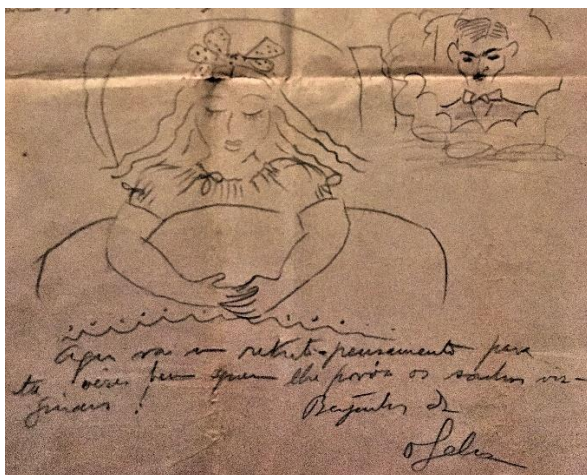 Aqui vai um retrato-pensamento para
tu veres bem quem lhe povôa os sonhos vir-
ginais !
Beijinhos da